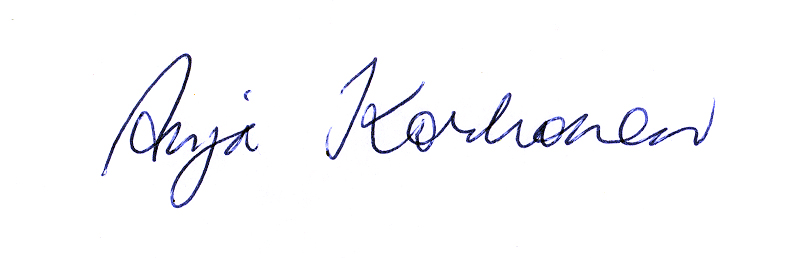 Anja Korhonen